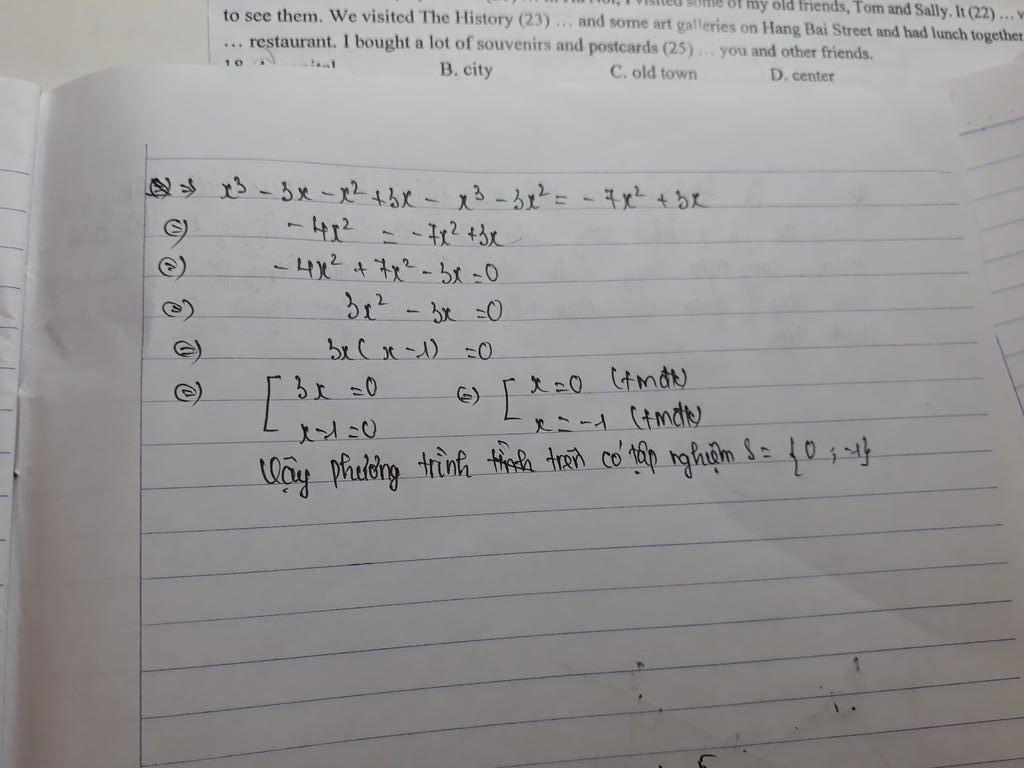 I visited some of my old friends, Tom and Sally. It (22) ...
to see them. We visited The History (23) ... and some art galleries on Hang Bai Street and had lunch together
... restaurant. I bought a lot of souvenirs and postcards (25) ... you and other friends.
B. city C. old town D. center
⇒ x³ - 3x - x² + 3x - x³ - 3x² = - 7x² + 3x
⇔ - 4x² = - 7x² + 3x
⇔ - 4x² + 7x² - 3x = 0
⇔ 3x² - 3x = 0
⇔ 3x ( x - 1) = 0
⇔ [ 3x = 0 ⇔ [ x = 0 (tmđk)
x - 1 = 0 x = -1 (tmđk)
Vậy phương trình trên có tập nghiệm S = { 0 ; -1}